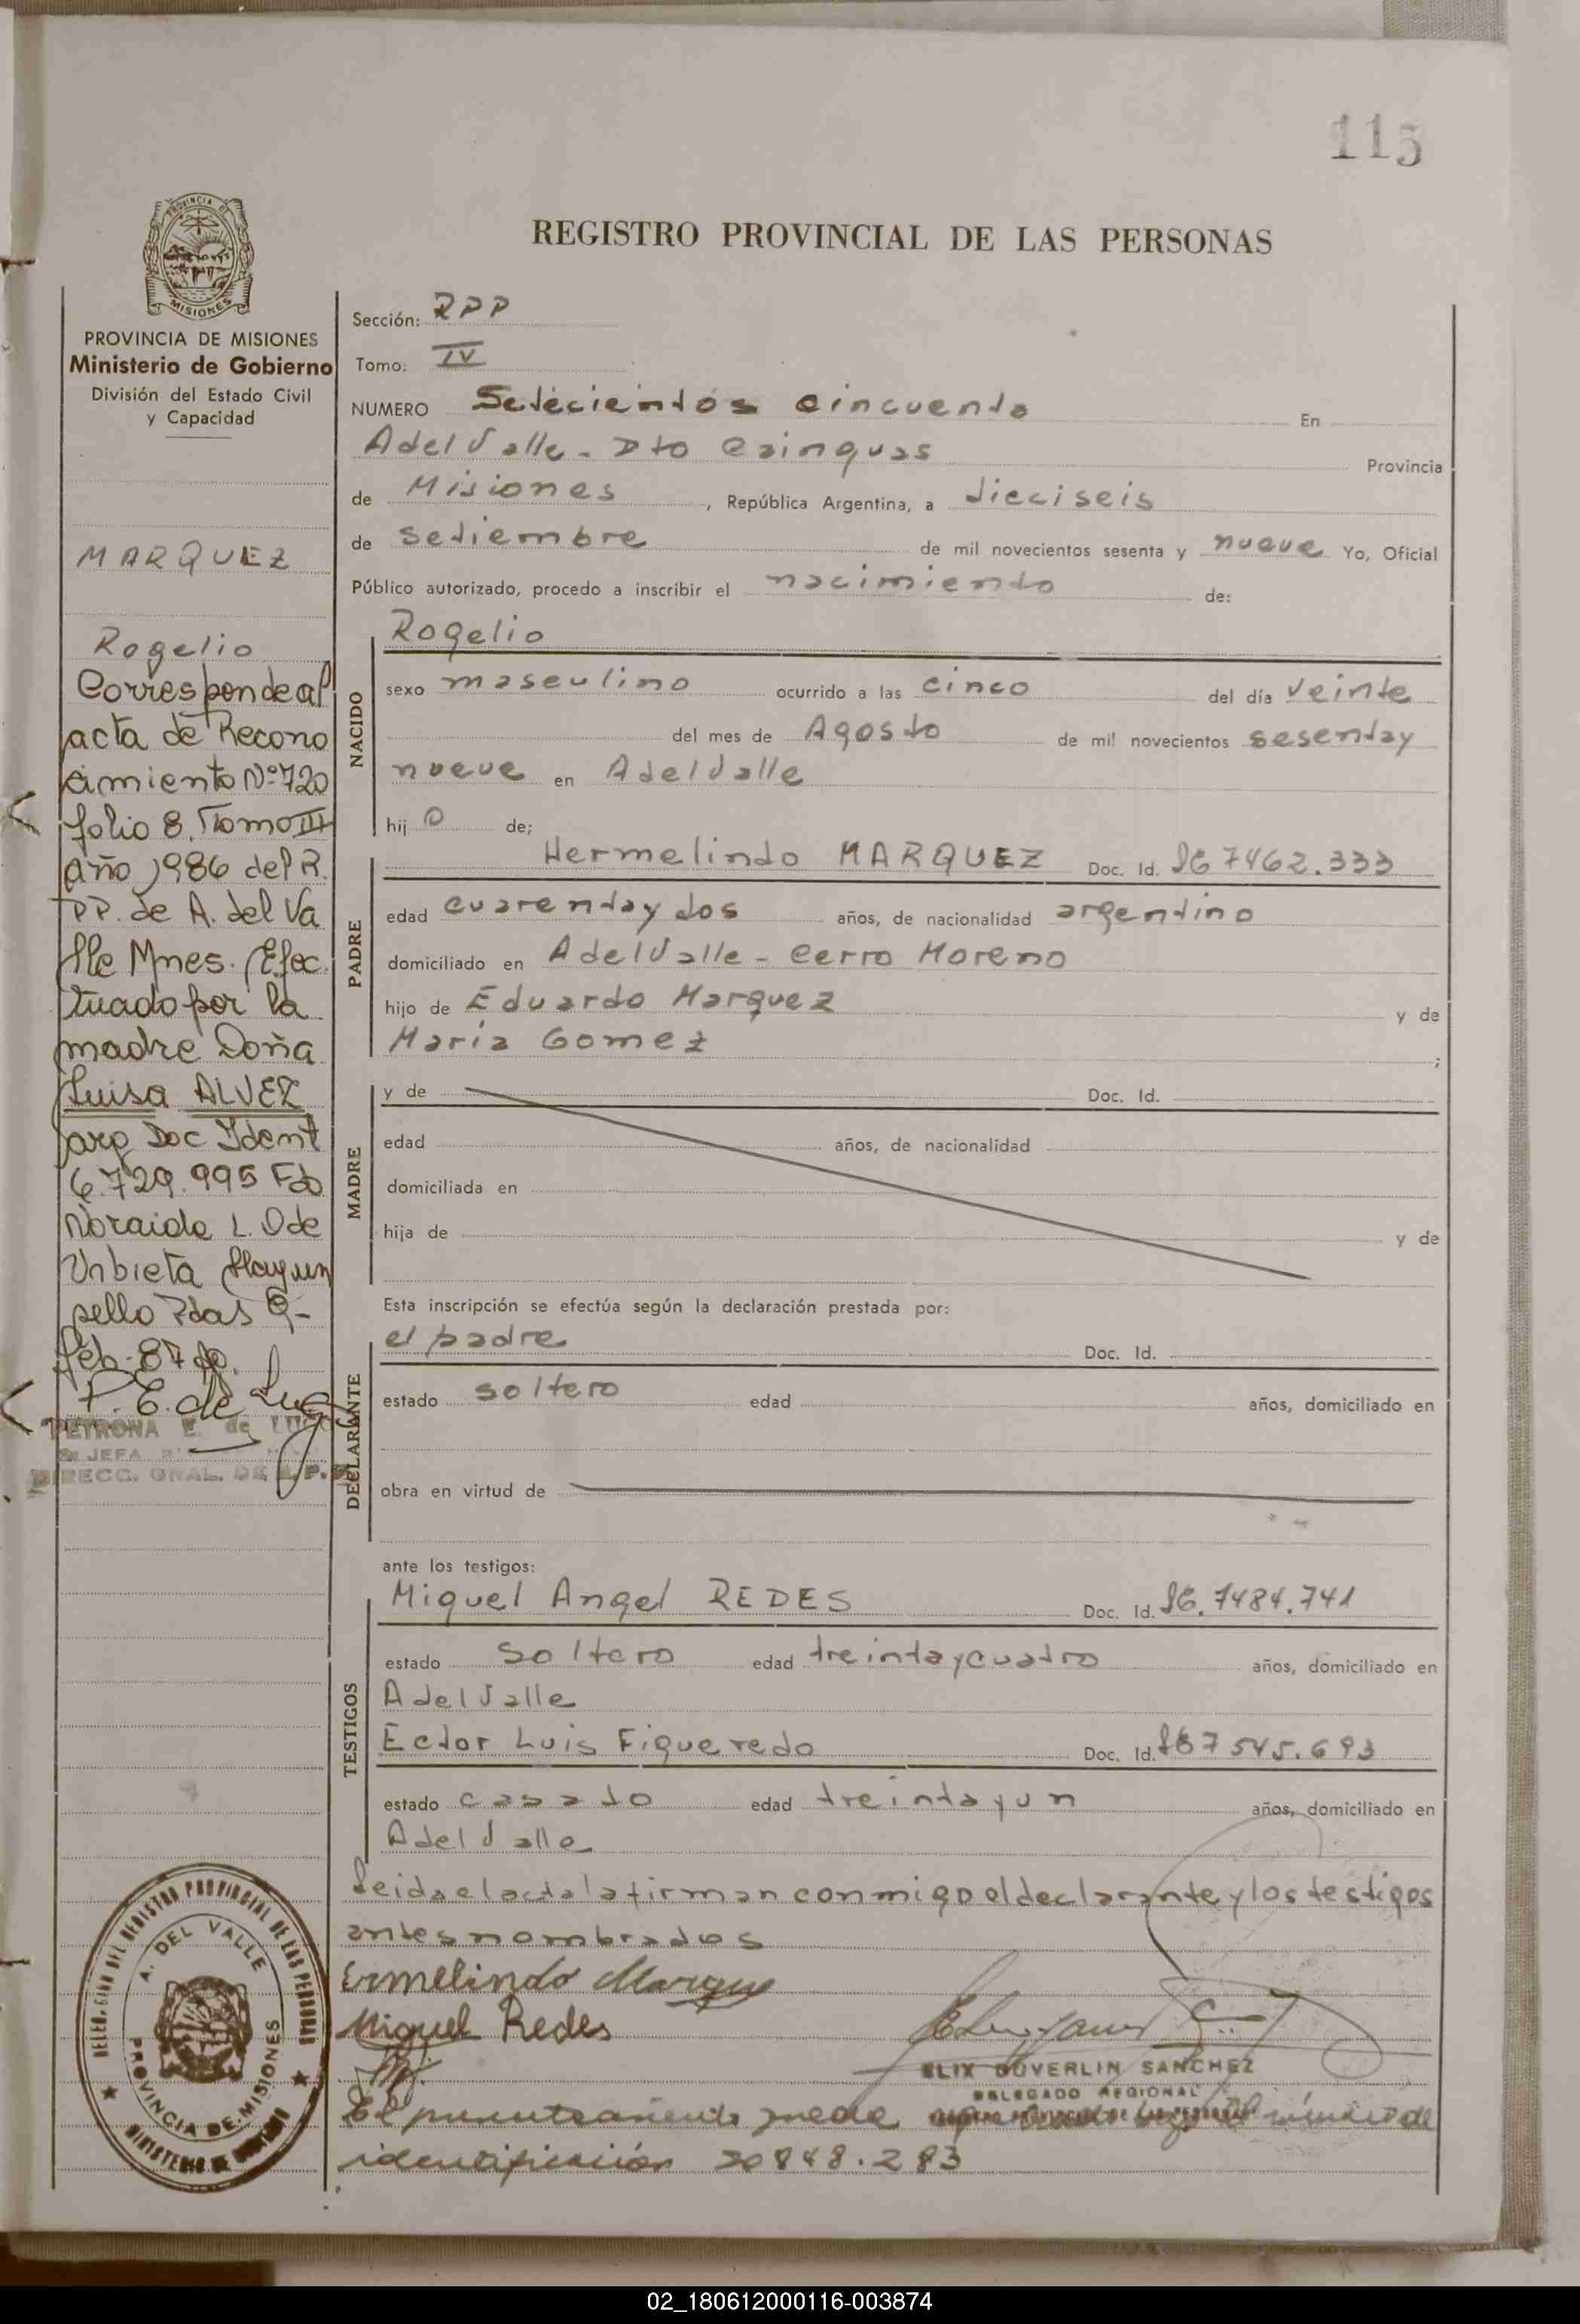 115
PROVINCIA DE
MISIONES
REGISTRO PROVINCIAL DE LAS PERSONAS
PROVINCIA DE MISIONES
Ministerio de Gobierno
División del Estado Civil
y Capacidad
MARQUEZ
Rogelio
Corresponde al
acta de Recono
cimiento Nº 720
folio 8. Tomo III
Año 1986 del R.
PP. de A. del Va
lle Mnes. Efec
tuado por la
madre Doña
Luisa ALVEZ
arg Doc Ident
6.729.995 Fdo
Noraida L. D de
Urbieta Hay un
sello Pdas 9-
feb-87
P. E. de Lugo
PETRONA E. de LUGO
JEFA
DIRECC. GRAL. DE R.P.P.
Sección: RPP
Tomo: IV
NUMERO Setecientos cincuenta En
A del Valle - Dto Cainguas Provincia
de Misiones, República Argentina, a dieciseis
de setiembre de mil novecientos sesenta y nueve Yo, Oficial
Público autorizado, procedo a inscribir el nacimiento de:
NACIDO
Rogelio
sexo masculino ocurrido a las cinco del día veinte
del mes de Agosto de mil novecientos sesenta y
nueve en A del Valle
hij o de;
PADRE
Hermelindo MARQUEZ Doc. Id. 7462.333
edad cuarenta y dos años, de nacionalidad argentino
domiciliado en A del Valle - Cerro Moreno
hijo de Eduardo Marquez y de
Maria Gomez ;
MADRE
y de Doc. Id.
edad años, de nacionalidad
domiciliada en
hija de y de
Esta inscripción se efectúa según la declaración prestada por:
DECLARANTE
el padre Doc. Id.
estado soltero edad años, domiciliado en
obra en virtud de
ante los testigos:
TESTIGOS
Miguel Angel REDES Doc. Id. 7484.741
estado soltero edad treinta y cuatro años, domiciliado en
A del Valle
Ector Luis Figueredo Doc. Id. 7545.693
estado casado edad treinta y un años, domiciliado en
A del Valle
Leida el acta la firman conmigo el declarante y los testigos
antes nombrados
Ermelindo Marques
Miguel Redes
ELIX DUVERLIN SANCHEZ
DELEGADO REGIONAL
El número de
identificación 20848.283
DELEGACION DEL REGISTRO PROVINCIAL DE LAS PERSONAS
A. DEL VALLE
PROVINCIA DE MISIONES
MINISTERIO DE GOBIERNO
02_180612000116-003874